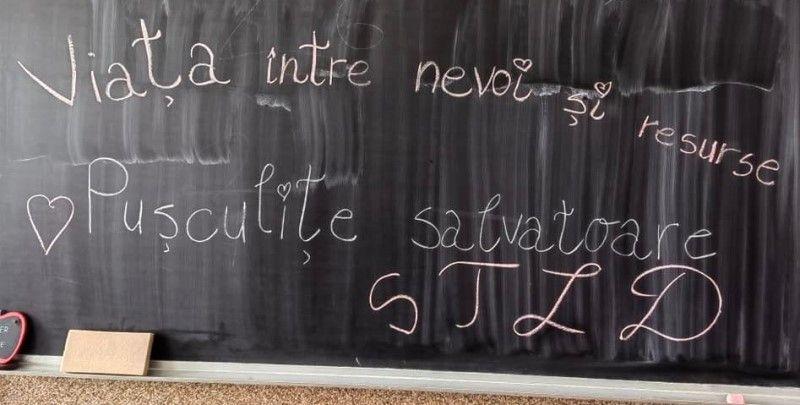 Viața între nevoi și resurse
Pușculițe salvatoare
STLD
ER